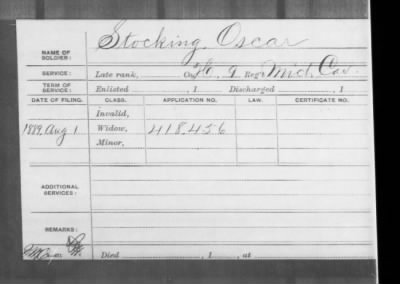 NAME OF SOLDIER: Stocking, Oscar
SERVICE: Late rank, Co. 9 Reg't Mich. Cav.
TERM OF SERVICE: Enlisted , 1 Discharged , 1
DATE OF FILING. CLASS. APPLICATION NO. LAW. CERTIFICATE NO.
Invalid,
1889, Aug 1 Widow, 418,456
Minor,
ADDITIONAL SERVICES:
REMARKS:
Died , 1 , at